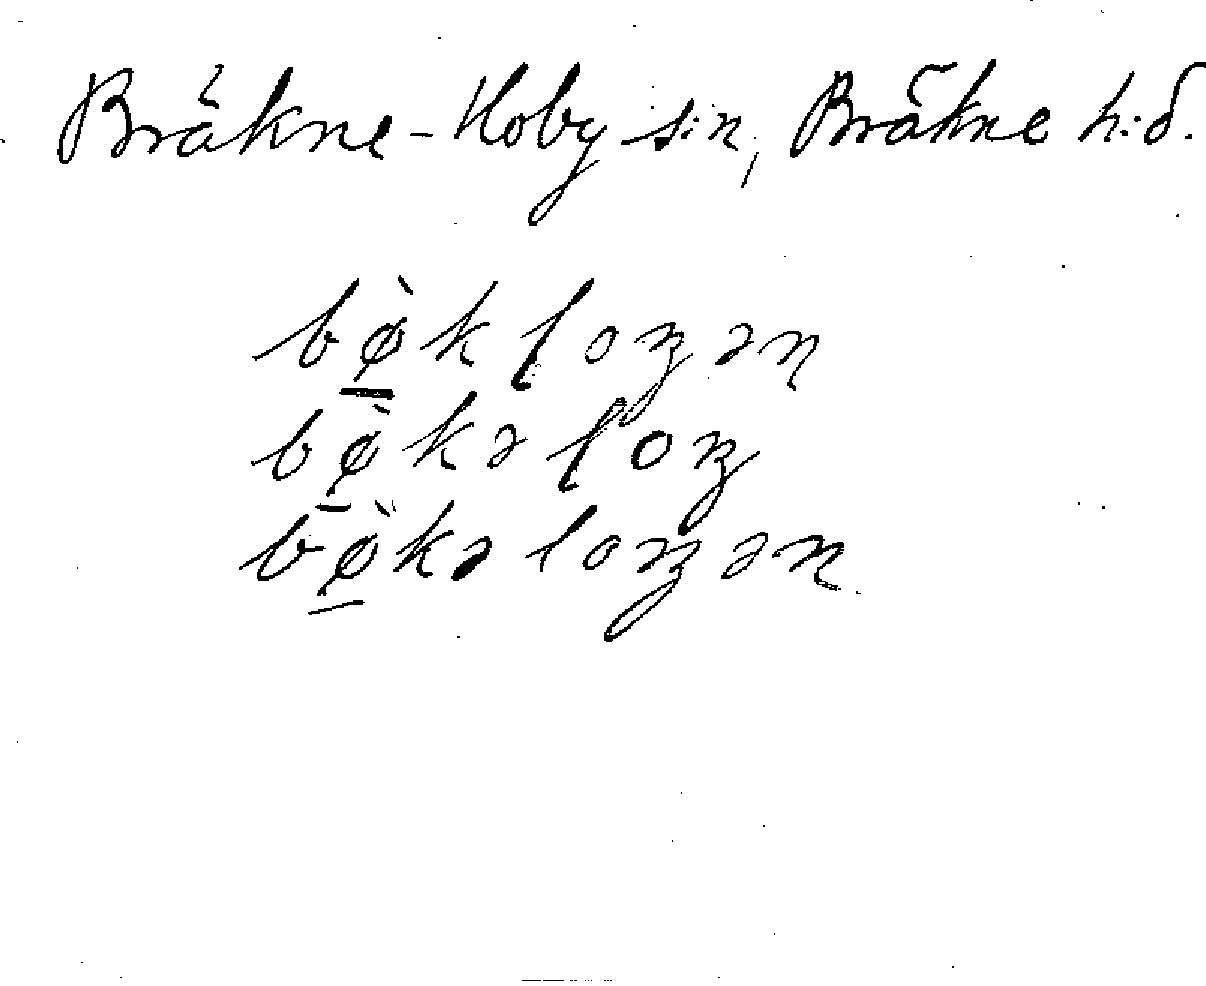 Bräkne-Hoby s:n, Bräkne h:d.
bø̀k loŋən
bø̀kə loŋ
bø̀kə loŋən